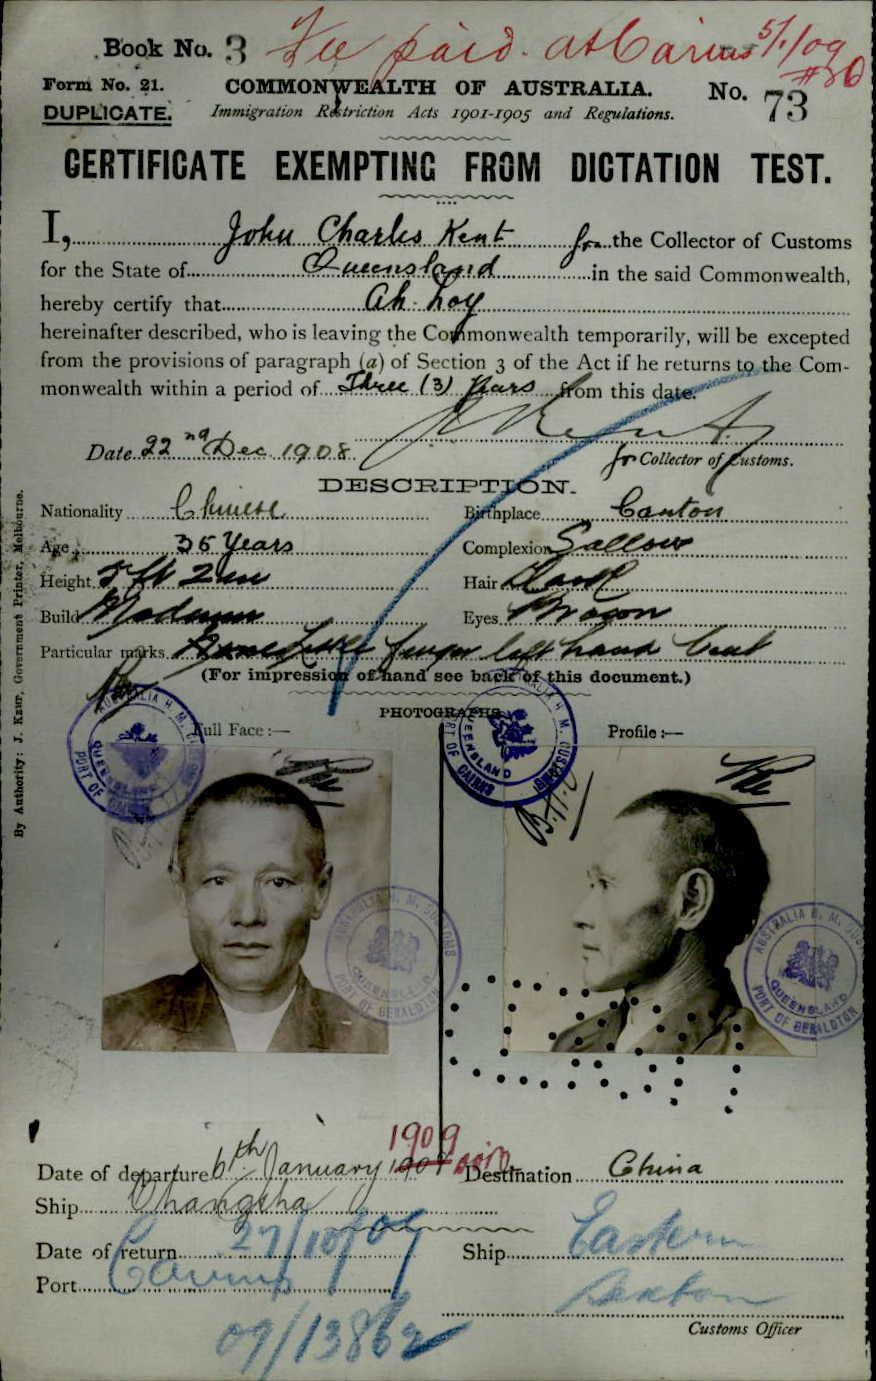 Book No. 3 Fee paid at Cairns 5/1/09
Form No. 21. COMMONWEALTH OF AUSTRALIA. No. 73
DUPLICATE. Immigration Restriction Acts 1901-1905 and Regulations.
CERTIFICATE EXEMPTING FROM DICTATION TEST.
I, John Charles Kent for the Collector of Customs
for the State of Queensland in the said Commonwealth,
hereby certify that Ah Loy
hereinafter described, who is leaving the Commonwealth temporarily, will be excepted
from the provisions of paragraph (a) of Section 3 of the Act if he returns to the Com-
monwealth within a period of Three (3) Years from this date.
J. C. Kent
Date 22nd Dec. 1908. for Collector of Customs.
DESCRIPTION.
Nationality Chinese Birthplace Canton
Age 35 Years Complexion Sallow
Height 5 ft 2 in Hair Dark
Build Medium Eyes Brown
Particular marks finger left hand bent
(For impression of hand see back of this document.)
PHOTOGRAPHS.
Full Face :— Profile :—
AUSTRALIA H. M. CUSTOMS QUEENSLAND PORT OF CAIRNS
AUSTRALIA H. M. CUSTOMS QUEENSLAND PORT OF CAIRNS
AUSTRALIA H. M. CUSTOMS QUEENSLAND PORT OF GERALDTON
AUSTRALIA H. M. CUSTOMS QUEENSLAND PORT OF GERALDTON
1909
Date of departure 6th January 1909 Destination China
Ship Changsha
Date of return 27/10/09 Ship Eastern
Port Cairns
Sexton
09/13862 Customs Officer
By Authority: J. Kemp, Government Printer, Melbourne.